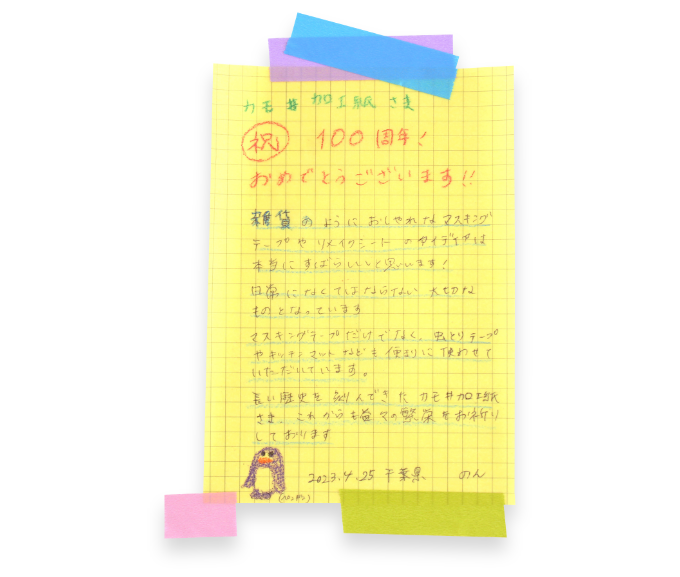 カモ井加工紙さま
祝 100周年!
おめでとうございます!!
雑貨のようにおしゃれなマスキング
テープやリメイクシートのアイディアは
本当にすばらしいと思います!
日常になくてはならない大切な
ものとなっています
マスキングテープだけでなく、虫とりテープ
やキッチンマットなども便利に使わせて
いただいています。
長い歴史を刻んできたカモ井加工紙
さま、これからも益々の繁栄をお祈り
しております
2023.4.25 千葉県 のん
(ペンギン)